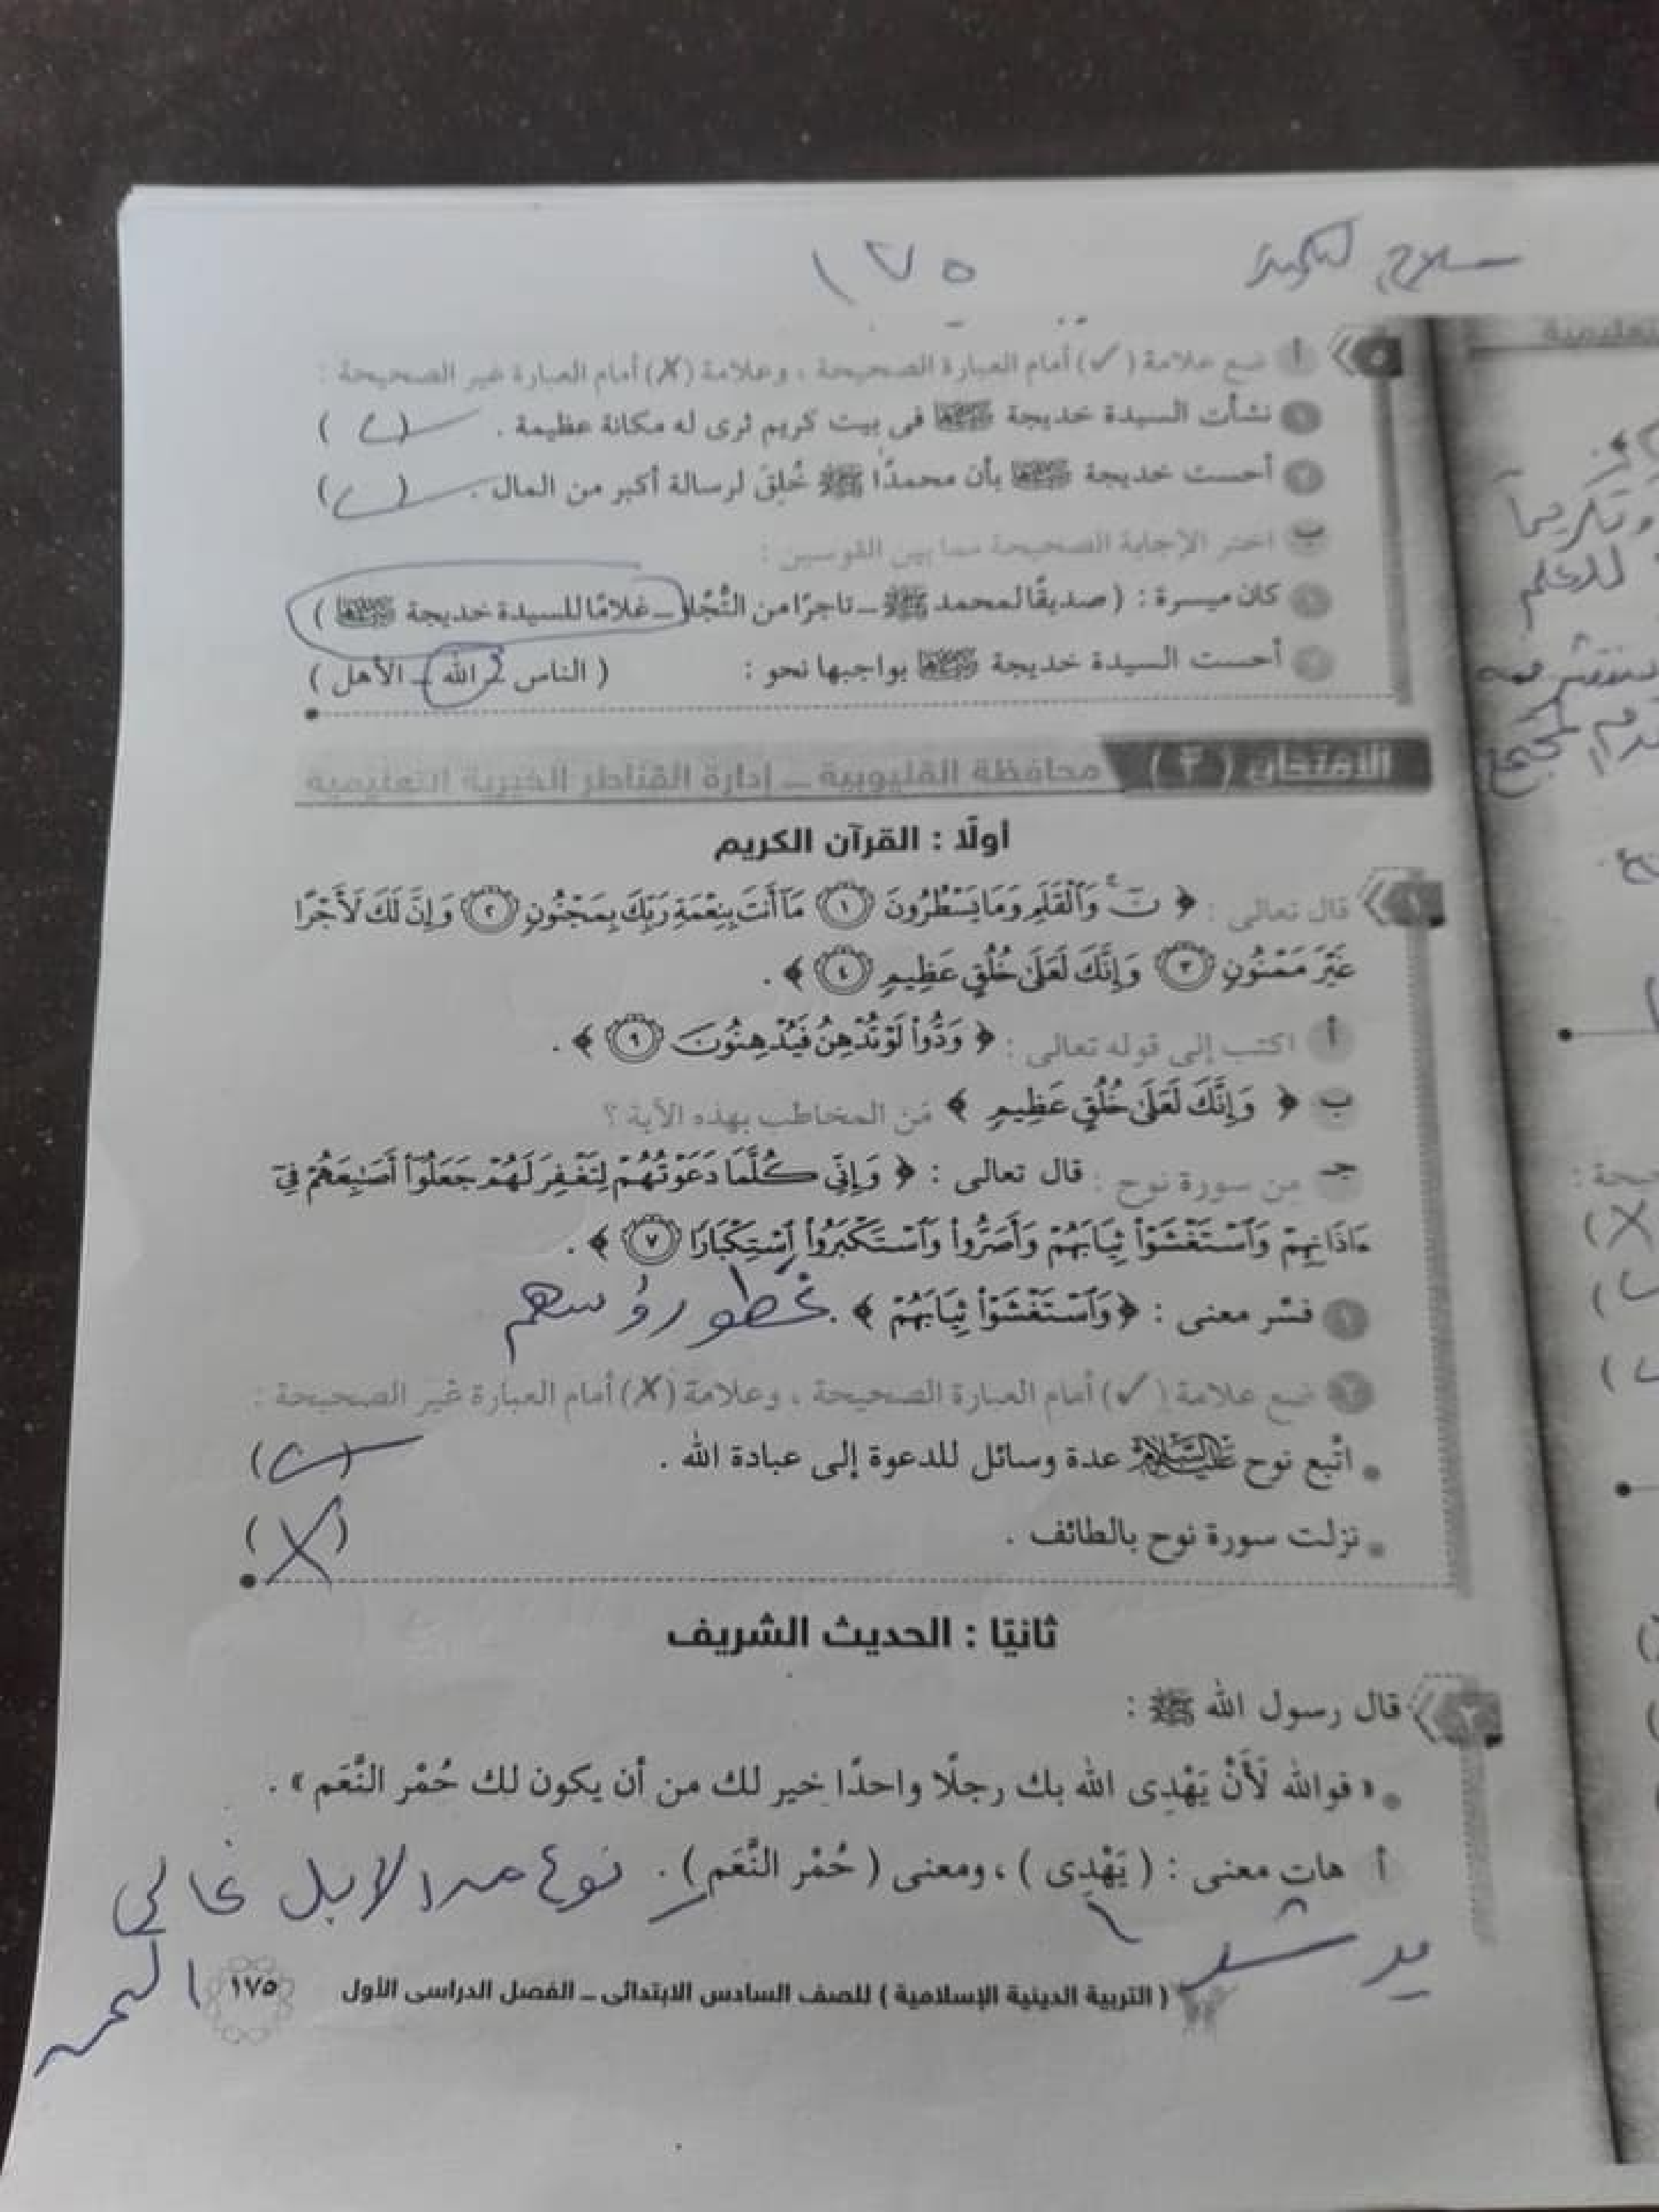 سلاح التلميذ ١٧٥
٥ أ ضع علامة (✓) أمام العبارة الصحيحة ، وعلامة (✗) أمام العبارة غير الصحيحة :
١ نشأت السيدة خديجة رضي الله عنها فى بيت كريم ثرى له مكانة عظيمة . (✓)
٢ أحست خديجة رضي الله عنها بأن محمدًا ﷺ خُلِقَ لرسالة أكبر من المال . (✓)
ب اختر الإجابة الصحيحة مما بين القوسين :
١ كان ميسرة : ( صديقًا لمحمد ﷺ ــ تاجرًا من التُّجَّار ــ غلامًا للسيدة خديجة رضي الله عنها )
٢ أحست السيدة خديجة رضي الله عنها بواجبها نحو : ( الناس ــ الله ــ الأهل )
الامتحان ( ٣ ) محافظة القليوبية ــ إدارة القناطر الخيرية التعليمية
أولًا : القرآن الكريم
١ قال تعالى : ﴿ نٓ وَٱلْقَلَمِ وَمَا يَسْطُرُونَ ١ مَآ أَنتَ بِنِعْمَةِ رَبِّكَ بِمَجْنُونٍ ٢ وَإِنَّ لَكَ لَأَجْرًا
غَيْرَ مَمْنُونٍ ٣ وَإِنَّكَ لَعَلَىٰ خُلُقٍ عَظِيمٍ ٤ ﴾ .
أ اكتب إلى قوله تعالى : ﴿ وَدُّوا۟ لَوْ تُدْهِنُ فَيُدْهِنُونَ ٩ ﴾ .
ب ﴿ وَإِنَّكَ لَعَلَىٰ خُلُقٍ عَظِيمٍ ﴾ مَن المخاطب بهذه الآية ؟
جـ من سورة نوح : قال تعالى : ﴿ وَإِنِّى كُلَّمَا دَعَوْتُهُمْ لِتَغْفِرَ لَهُمْ جَعَلُوٓا۟ أَصَٰبِعَهُمْ فِىٓ
ءَاذَانِهِمْ وَٱسْتَغْشَوْا۟ ثِيَابَهُمْ وَأَصَرُّوا۟ وَٱسْتَكْبَرُوا۟ ٱسْتِكْبَارًا ٧ ﴾ .
١ فسّر معنى : ﴿ وَٱسْتَغْشَوْا۟ ثِيَابَهُمْ ﴾ . غطو رؤسهم
٢ ضع علامة (✓) أمام العبارة الصحيحة ، وعلامة (✗) أمام العبارة غير الصحيحة :
اتَّبع نوح عليه السلام عدة وسائل للدعوة إلى عبادة الله . (✓)
نزلت سورة نوح بالطائف . (✗)
ثانيًا : الحديث الشريف
٢ قال رسول الله ﷺ :
« فوالله لَأَنْ يَهْدِى الله بك رجلًا واحدًا خير لك من أن يكون لك حُمْر النَّعَم » .
أ هات معنى : ( يَهْدِى ) ، ومعنى ( حُمْر النَّعَم ) . نوع من الإبل غالي
يرشد
الثمن
( التربية الدينية الإسلامية ) للصف السادس الابتدائى ــ الفصل الدراسى الأول ١٧٥